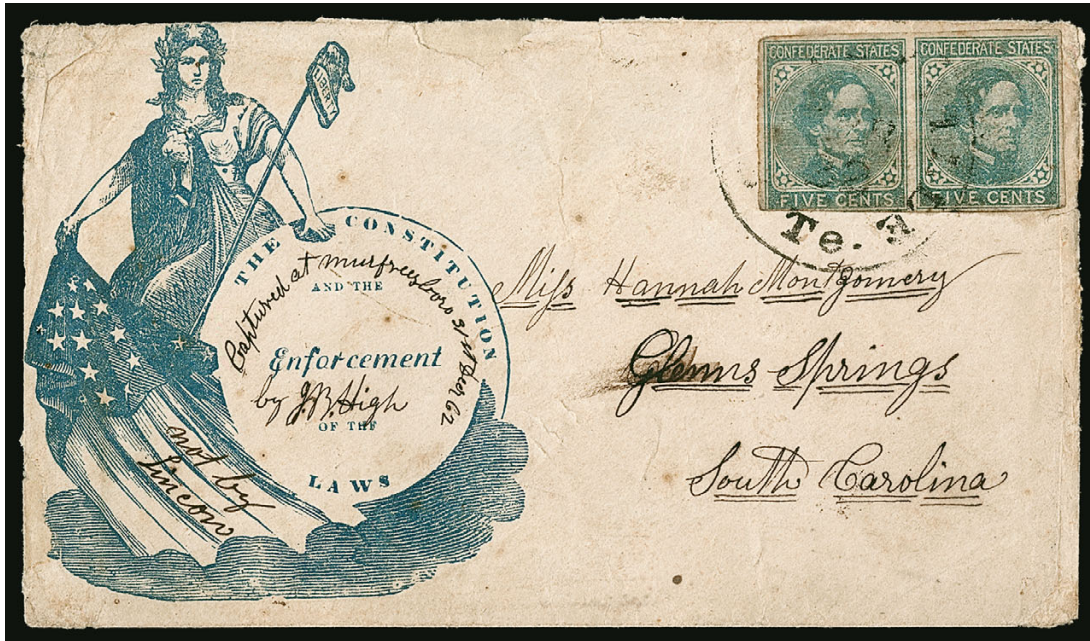 CONFEDERATE STATES
FIVE CENTS
CONFEDERATE STATES
FIVE CENTS
Te.
LIBERTY
THE CONSTITUTION
AND THE
Enforcement
OF THE
LAWS
Captured at murfreesboro 31st Dec 62
by J.B. High
not by
Lincon
Miss Hannah Montgomery
Glenns Springs
South Carolina